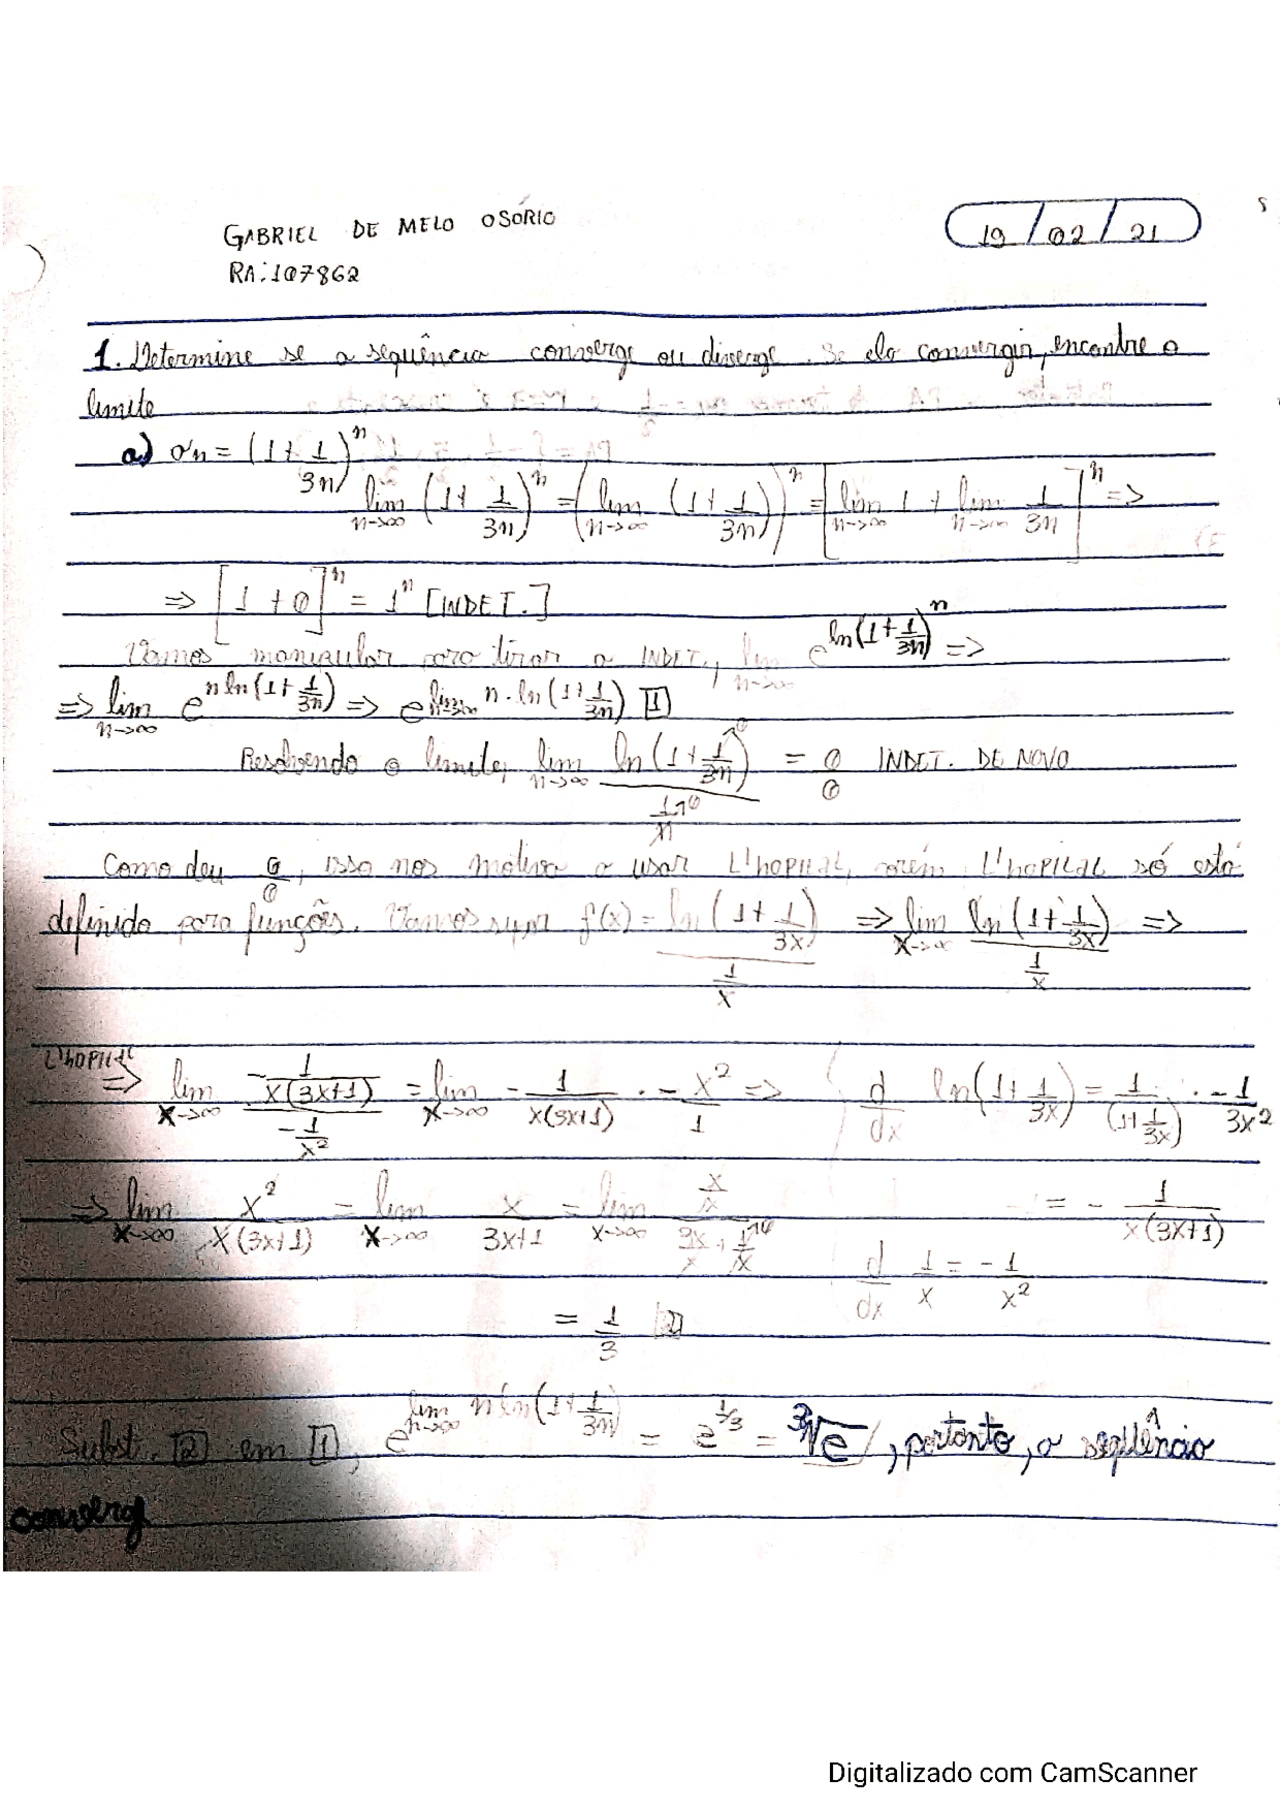 GABRIEL DE MELO OSÓRIO
19/02/21
RA:107862
1. Determine se a sequência converge ou diverge. Se ela convergir, encontre o
limite
a) an = (1 + 1/3n)^n
lim n→∞ (1 + 1/3n)^n = (lim n→∞ (1 + 1/3n))^n = [lim n→∞ 1 + lim n→∞ 1/3n]^n =>
=> [1 + 0]^n = 1^n [INDET.]
Vamos manipular para tirar a INDET., lim n→∞ e^ln(1 + 1/3n)^n =>
=> lim n→∞ e^n ln(1 + 1/3n) => e^lim n→∞ n · ln(1 + 1/3n) [1]
Resolvendo o limite, lim n→∞ ln(1 + 1/3n)^→0 / (1/n)^→0 = 0/0 INDET. DE NOVO
Como deu 0/0, isso nos motiva a usar L'HOPITAL, porém L'HOPITAL só está
definido para funções. Vamos supor f(x) = ln(1 + 1/3x) / (1/x) => lim x→∞ ln(1 + 1/3x) / (1/x) =>
L'HOPITAL => lim x→∞ (-1/x(3x+1)) / (-1/x²) = lim x→∞ -1/x(3x+1) · -x²/1 =>
d/dx ln(1 + 1/3x) = 1/(1 + 1/3x) · -1/3x²
=> lim x→∞ x²/x(3x+1) = lim x→∞ x/3x+1 = lim x→∞ (x/x) / (3x/x + 1/x^→0)
= -1/x(3x+1)
d/dx 1/x = -1/x²
= 1/3 [2]
Subst. [2] em [1], e^lim n→∞ n ln(1 + 1/3n) = e^1/3 = ³√e //, portanto, a seqüência
converge
Digitalizado com CamScanner